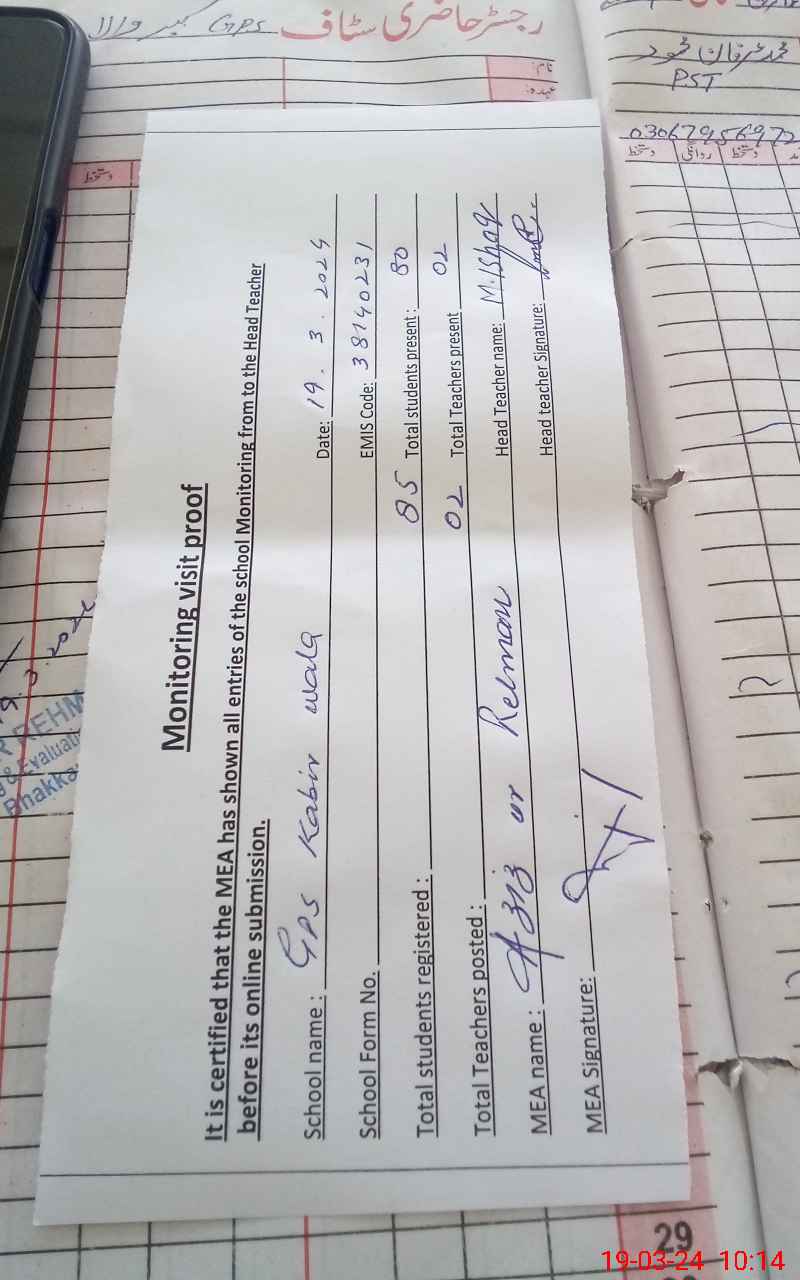 رجسٹر حاضری سٹاف GPS کبیر والا
نام:
عہدہ:
دستخط
PST
03067956972
دستخط روانگی دستخط
Monitoring visit proof
It is certified that the MEA has shown all entries of the school Monitoring from to the Head Teacher
before its online submission.
School name : GPS Kabir wala Date: 19 . 3 . 2024
School Form No. EMIS Code: 38140231
Total students registered : 85 Total students present : 80
Total Teachers posted : 02 Total Teachers present 02
MEA name : Aziz ur Rehman Head Teacher name: M. Ishaq
MEA Signature: Head teacher Signature:
REHM
& Evaluati
Bhakka
29
19-03-24 10:14